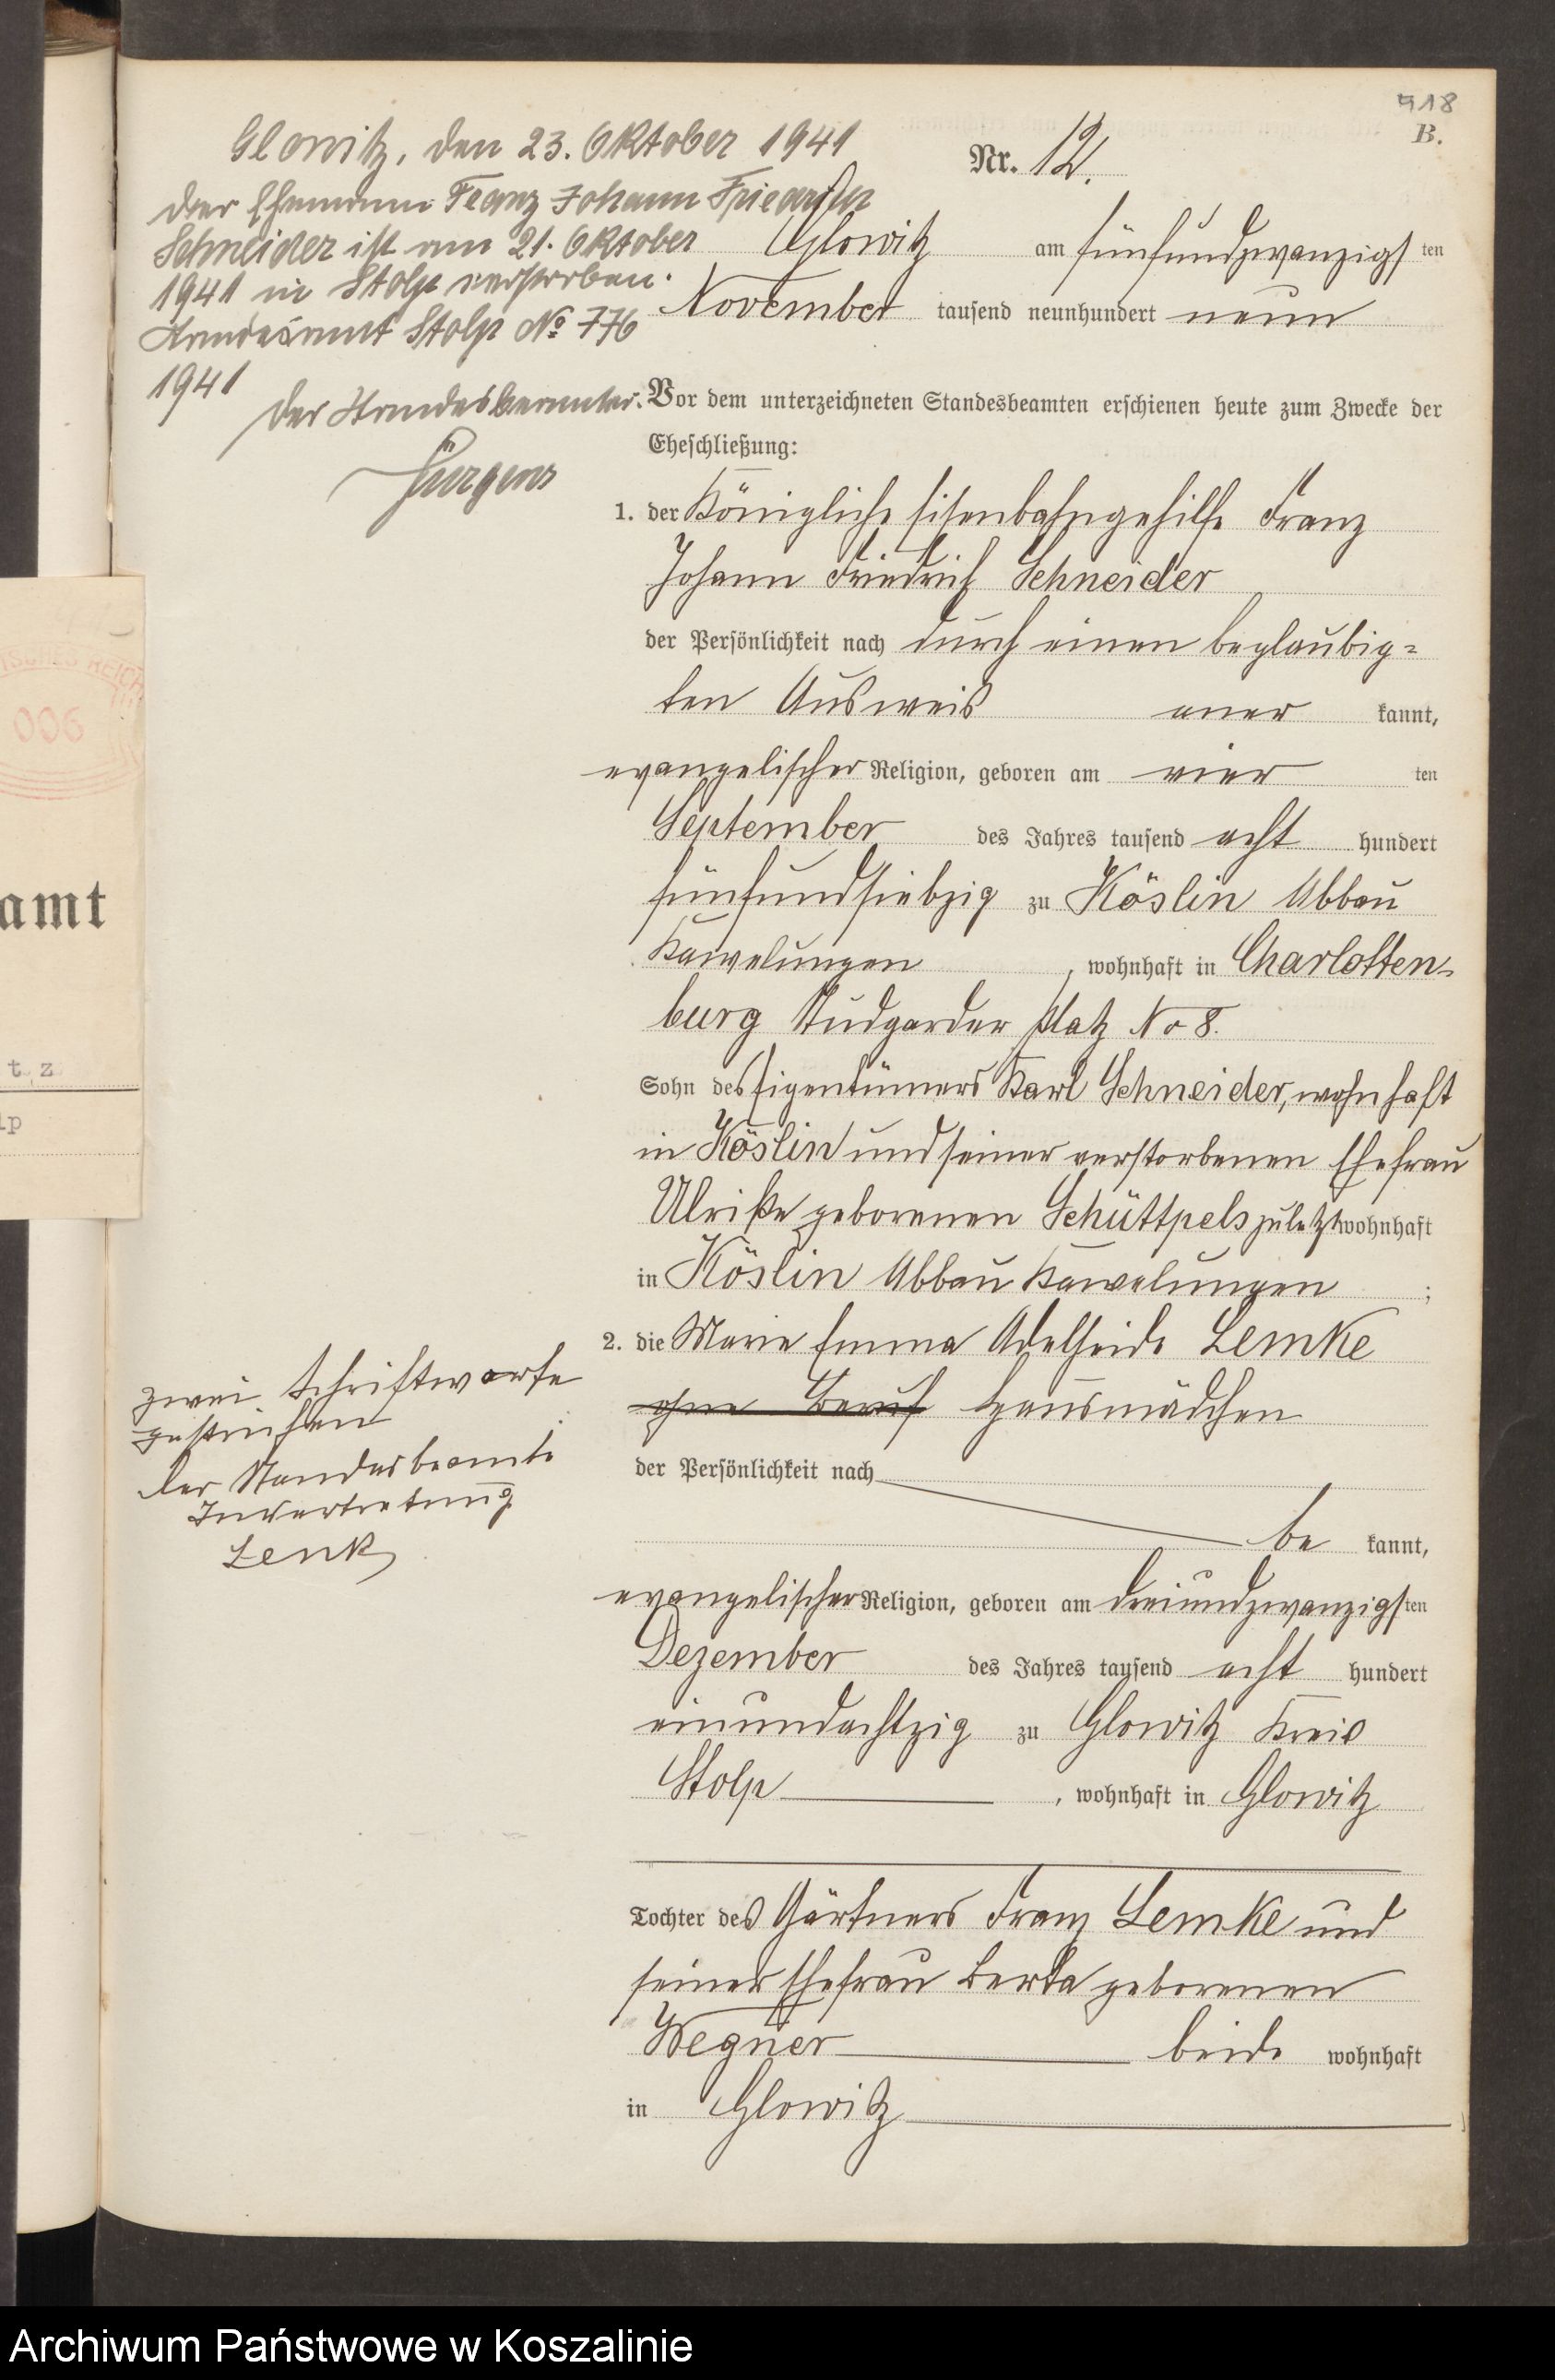 718
B.
Nr. 12.
Glowitz, den 23. Oktober 1941
Der Ehemann Franz Johann Friedrich
Schneider ist am 21. Oktober
1941 in Stolp verstorben.
Standesamt Stolp No 776
1941
Der Standesbeamte.
Jürgens
Glowitz am fünfundzwanzigsten
November tausend neunhundert neun
Vor dem unterzeichneten Standesbeamten erschienen heute zum Zwecke der
Eheschließung:
1. der Königliche Eisenbahngehilfe Franz
Johann Friedrich Schneider
der Persönlichkeit nach durch einen beglaubig=
ten Ausweis anerkannt,
evangelischer Religion, geboren am vierten
September des Jahres tausend achthundert
fünfundsiebzig zu Köslin Abbau
Kawelungen, wohnhaft in Charlotten-
burg Platz No 8.
Sohn des Eigentümers Karl Schneider, wohnhaft
in Köslin und seiner verstorbenen Ehefrau
Ulrike geborenen Schüttpelz zuletzt wohnhaft
in Köslin Abbau Kawelungen;
2. die Marie Emma Adelheide Lemke
ohne Beruf Hausmädchen
der Persönlichkeit nach
bekannt,
evangelischer Religion, geboren am dreiundzwanzigsten
Dezember des Jahres tausend achthundert
einundachtzig zu Glowitz Kreis
Stolp, wohnhaft in Glowitz
Tochter des Gärtners Franz Lemke und
seiner Ehefrau Berta geborenen
Wegner beide wohnhaft
in Glowitz
zwei Schriftworte
gestrichen
Der Standesbeamte
In Vertretung
Lenk
006
amt
t z
lp
Archiwum Państwowe w Koszalinie